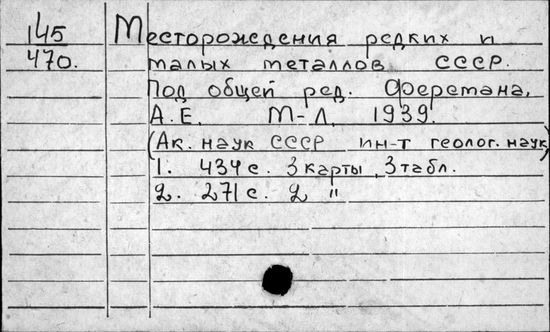 145 Месторождения редких и
470. малых металлов СССР.
Под общей ред. Ферстана,
А.Е. М-Л. 1939.
(Ак. наук СССР ин-т геолог. наук)
1. 434 с. 3 карты, 3 табл.
2. 271 с. 2 "